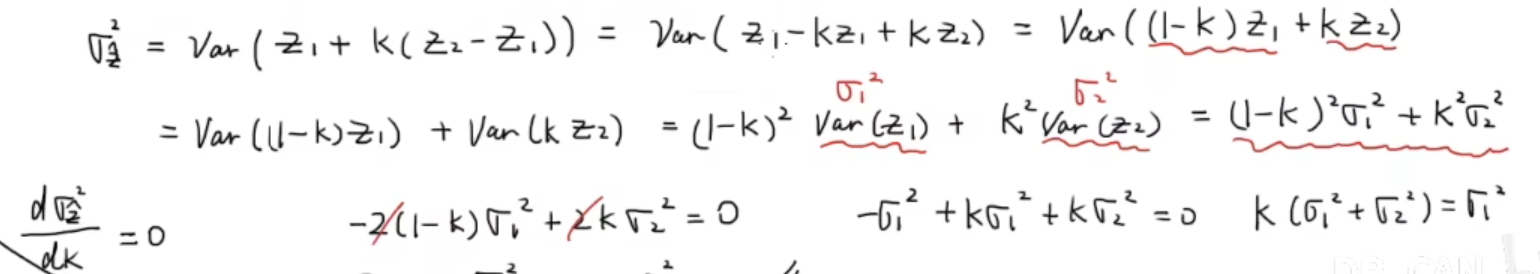 σ_ẑ² = Var(z₁ + k(z₂ - z₁)) = Var(z₁ - kz₁ + kz₂) = Var((1-k)z₁ + kz₂)
σ₁² σ₂²
= Var((1-k)z₁) + Var(kz₂) = (1-k)² Var(z₁) + k² Var(z₂) = (1-k)²σ₁² + k²σ₂²
dσ_ẑ²/dk = 0 -2(1-k)σ₁² + 2kσ₂² = 0 -σ₁² + kσ₁² + kσ₂² = 0 k(σ₁² + σ₂²) = σ₁²
DR_CAN